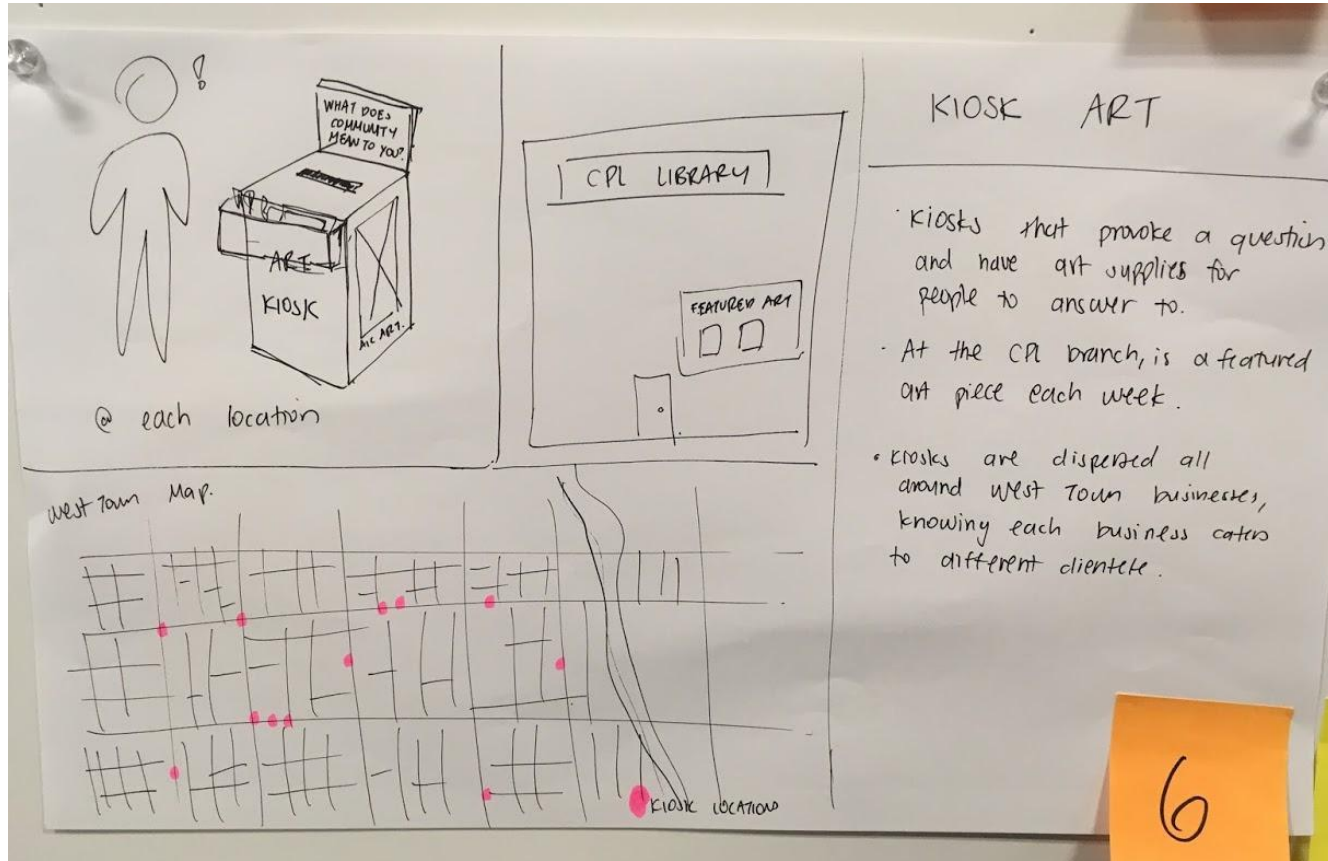 !
WHAT DOES
COMMUNITY
MEAN TO YOU?
ART
KIOSK
AIC ART.
@ each location
CPL LIBRARY
FEATURED ART
KIOSK ART
· Kiosks that provoke a question
and have art supplies for
people to answer to.
· At the CPL branch, is a featured
art piece each week.
· Kiosks are dispersed all
around West Town businesses,
knowing each business caters
to different clientele.
West Town Map.
KIOSK LOCATIONS
6